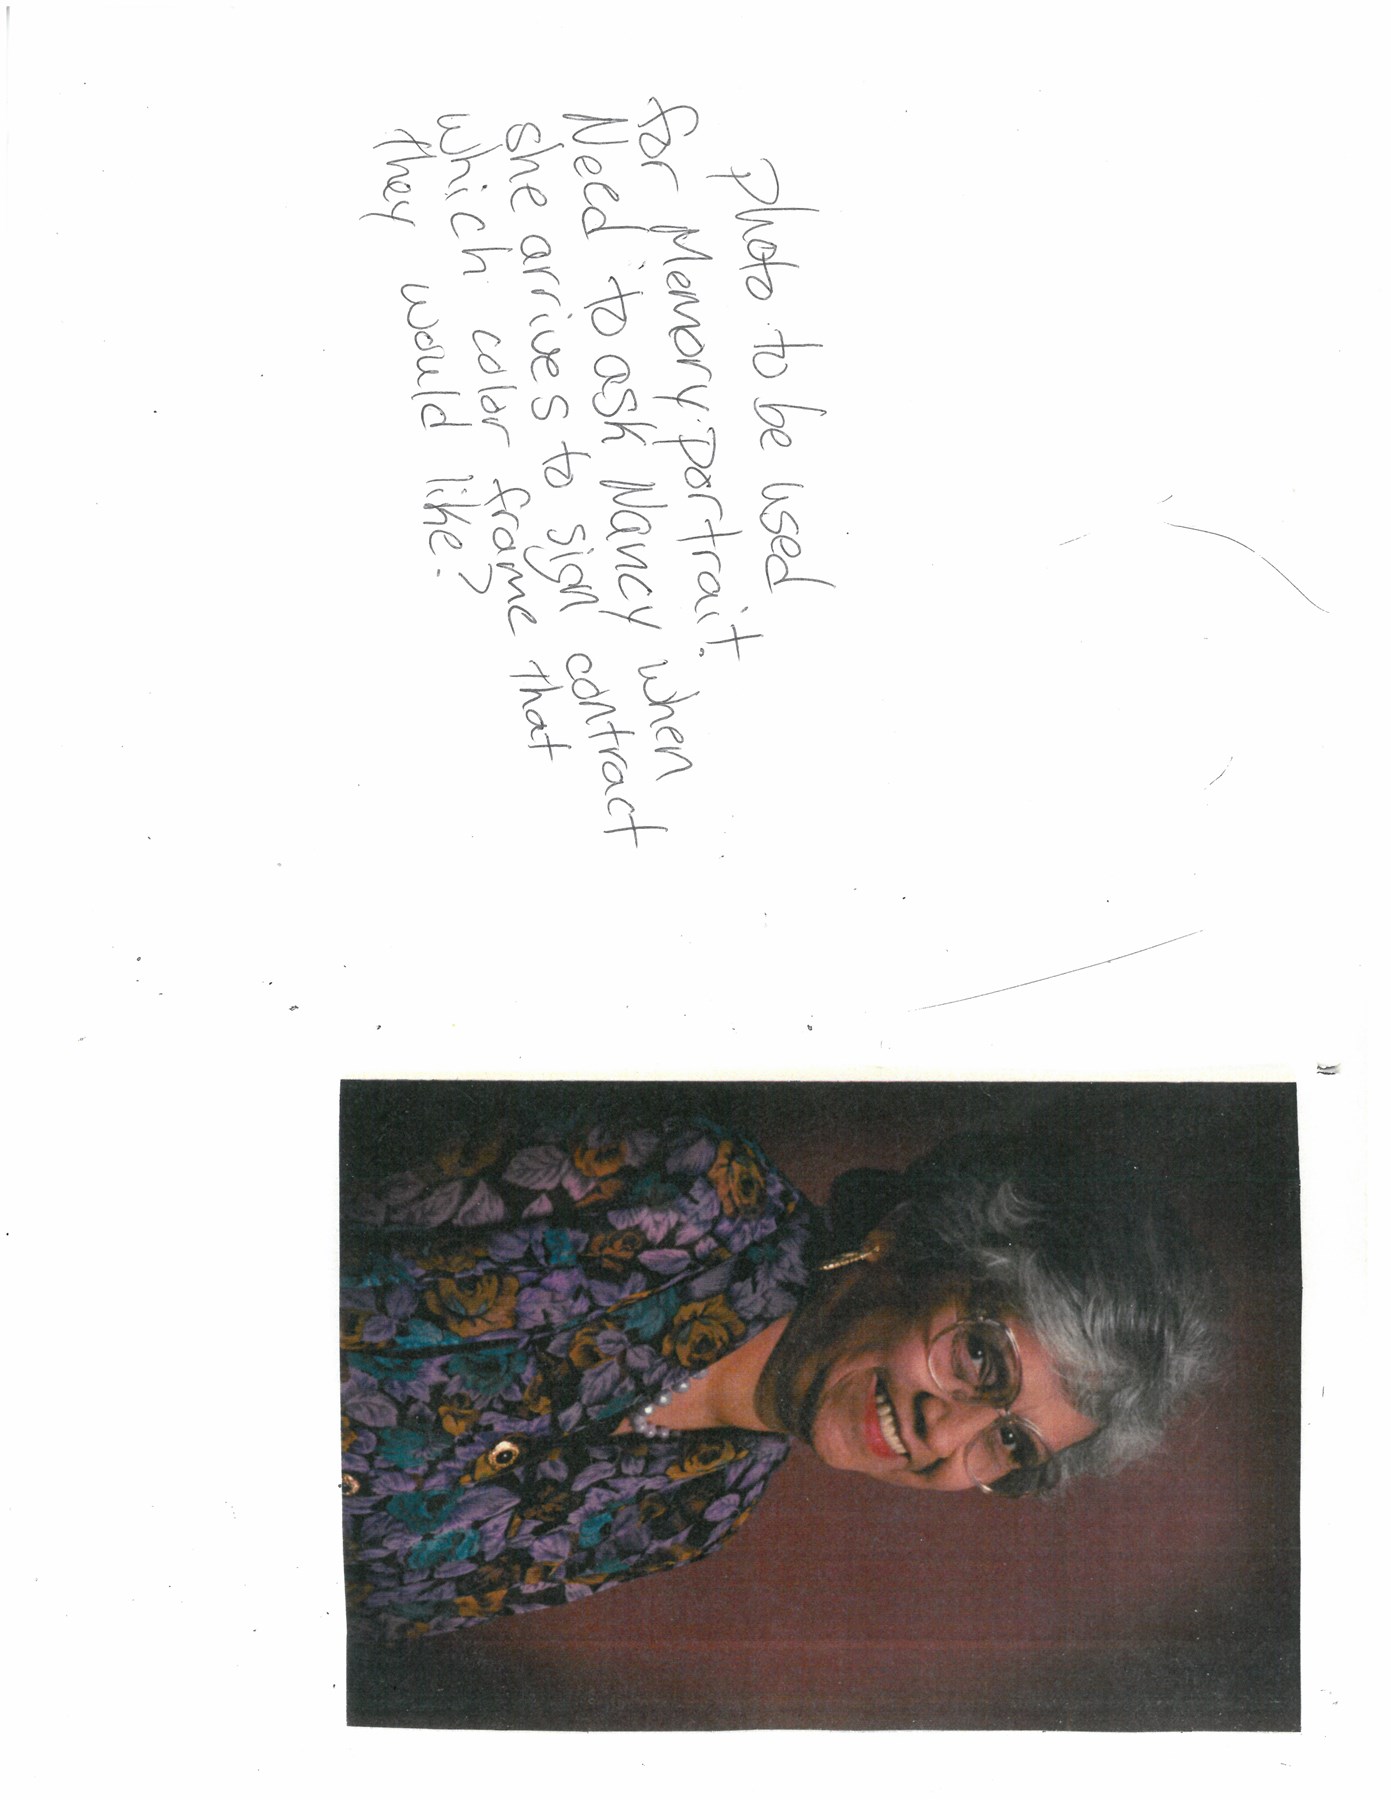 Photo to be used
for Memory Portrait.
Need to ask Nancy when
she arrives to sign contract
which color frame that
they would like?